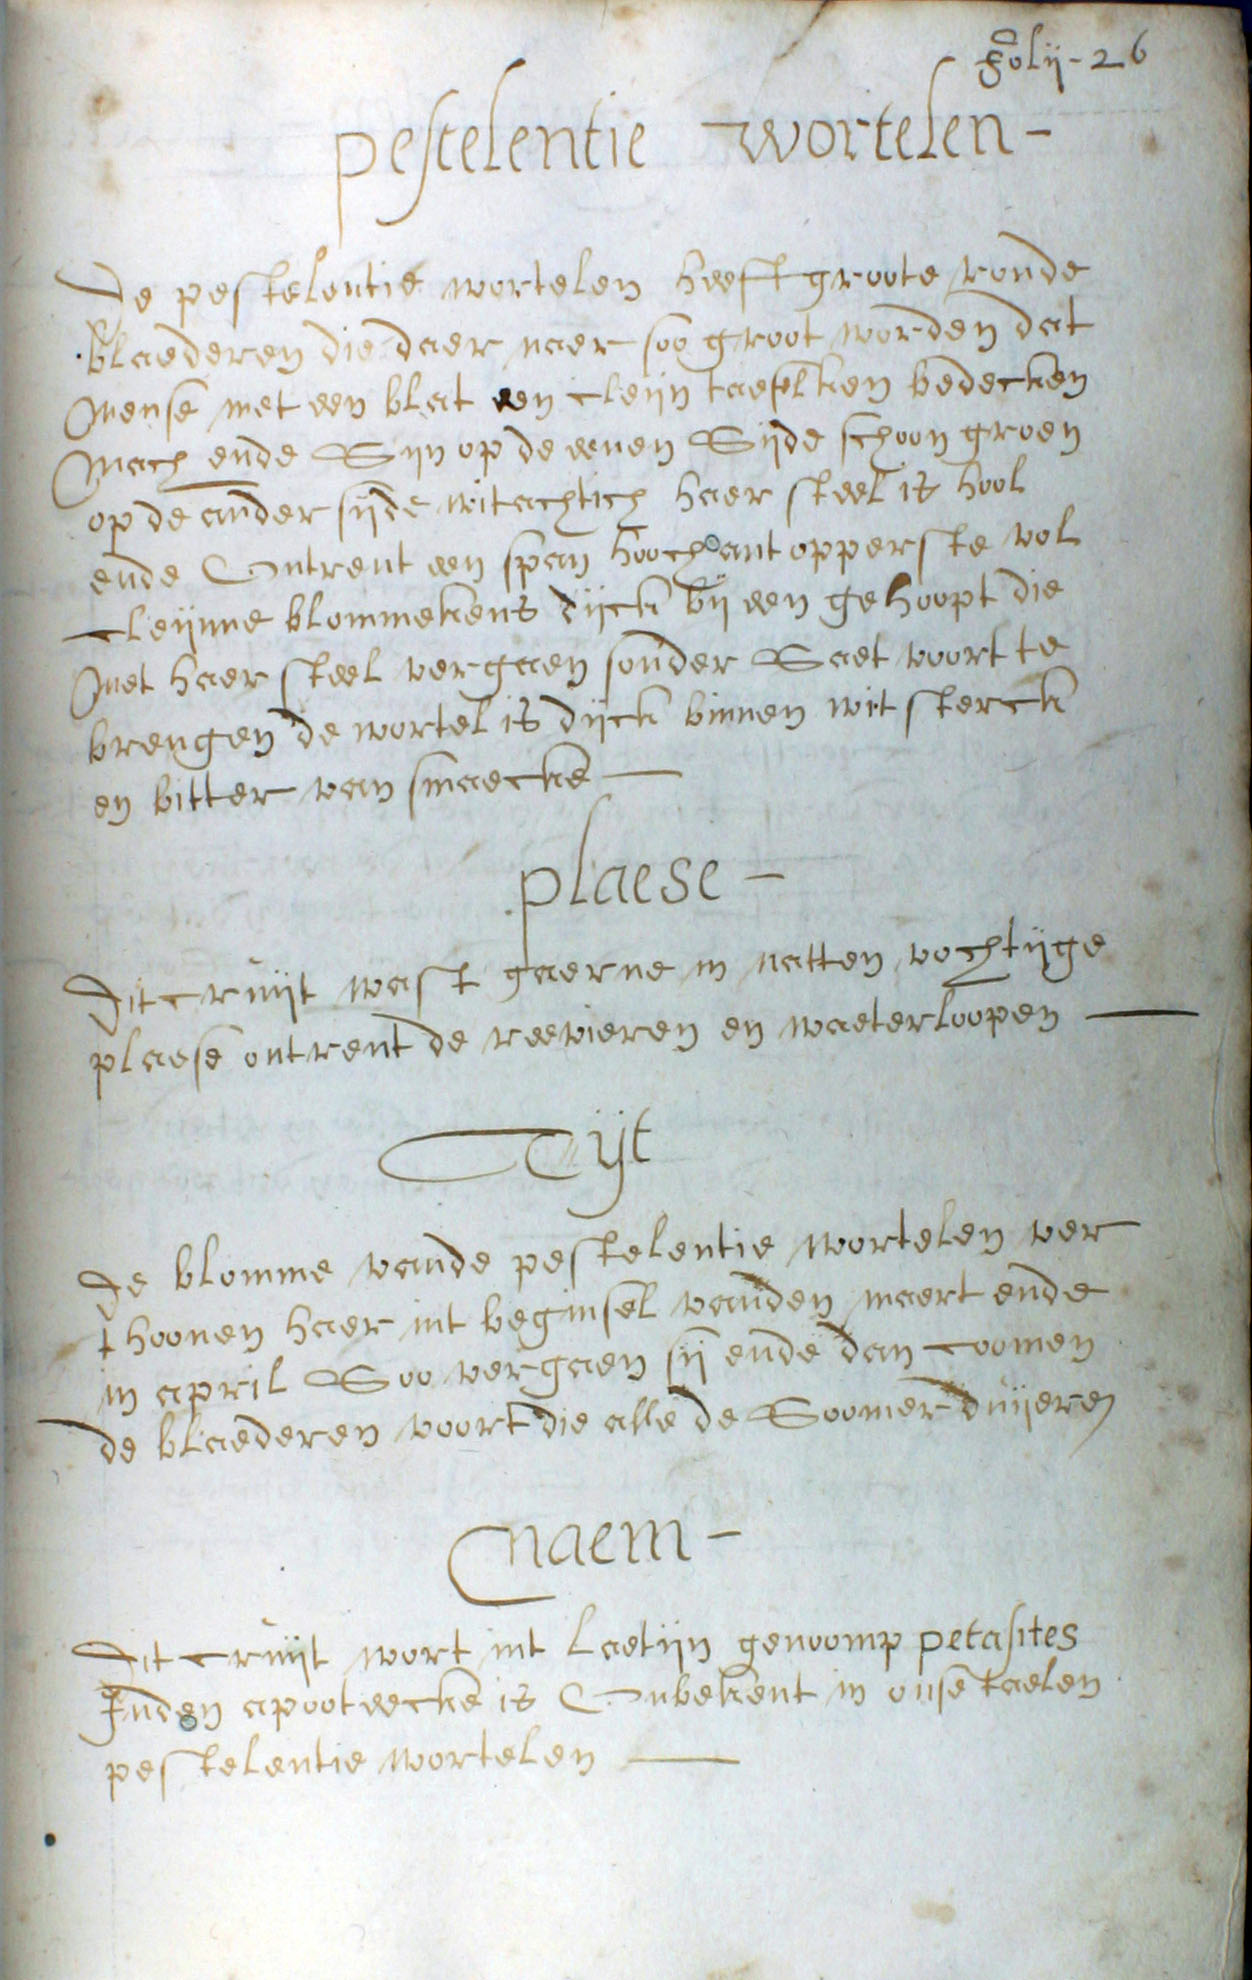 Folij - 26
pestelentie wortelen -
De pestelentie wortelen heeft groote ronde
blaederen die daer naer soo groot worden dat
mense met een blat een cleijn taefelken bedecken
mach ende Sijn op de eenen Sijde schoon groen
op de ander sijde witachtich haer steel is hool
ende Ontrent een span hooch ant opperste vol
cleijnne blommekens dijck bij een gehoopt die
met haer steel vergaen sonder Saet voort te
brengen de wortel is dijck binnen wit sterck
en bitter van smaecke —
plaese -
Dit cruijt wast gaerne in natten vochtijge
plaese ontrent de reevieren en waeterloopen —
Tijt
De blomme vande pestelentie wortelen ver
thoonen haer int beginsel vanden maert ende
in april Soo vergaen sij ende dan coomen
de blaederen voort die alle de Soomer duijeren
naem -
Dit cruijt wort int Laetijn genoomp petasites
Inden apooteecke is Onbekent in onse taelen
pestelentie wortelen —